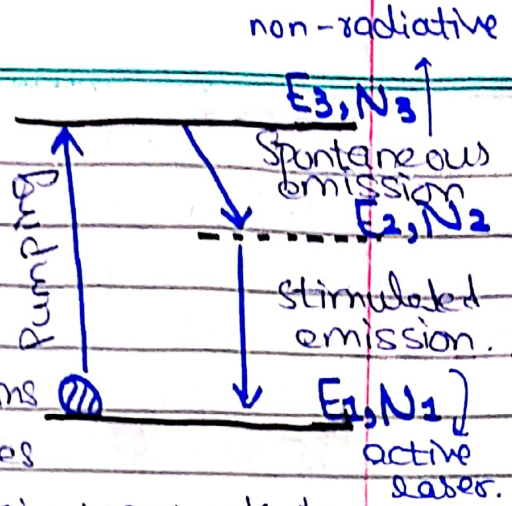 non-radiative
E3, N3
Spontaneous
emission
E2, N2
Pumping
stimulated
emission.
ms
E1, N1
es
active
laser.